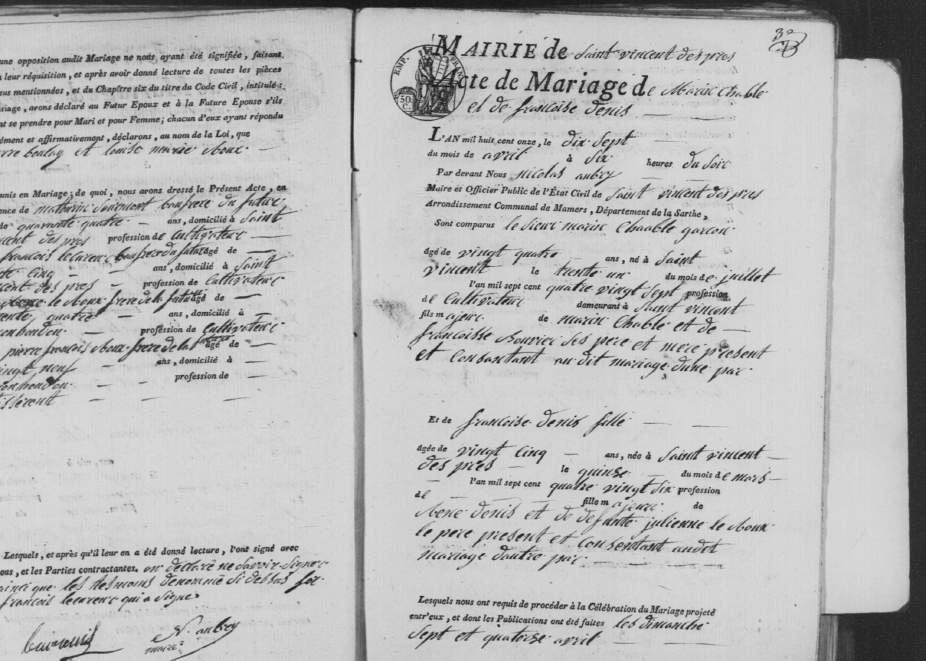 une opposition audit Mariage ne nous ayant été signifiée, faisant
leur réquisition, et après avoir donné lecture de toutes les pièces
sus mentionnées, et du Chapitre six du titre du Code Civil, intitulé:
riage, avons déclaré au Futur Epoux et à la Future Epouse s'ils
nt se prendre pour Mari et pour Femme; chacun d'eux ayant répondu
ément et affirmativement, déclarons, au nom de la Loi, que
et louise marie
unis en Mariage; de quoi, nous avons dressé le Présent Acte, en
ence de mathurin beaufrere du futur
de quarante quatre ans, domicilié à Saint
cent des pres profession de Cultivateur
francois beaufrere du futur agé de
te Cinq ans, domicilié à Saint
cent des pres profession de Cultivateur
frere de la future agé de
rente quatre ans, domicilié à
profession de Cultivateur
pierre francois frere de la future agé de
vingt neuf ans, domicilié à
profession de
Lesquels, et après qu'il leur en a été donné lecture, l'ont signé avec
ous, et les Parties contractantes. on declaré ne savoir signer
ainci que les temoins denommé si dessus
francois qui a signé
N. aubry
maire
MAIRIE de Saint vincent des pres
EMP.
50 C.
Acte de Mariage de Marin Chable
et de francoise denis
L'AN mil huit cent onze, le dix Sept
du mois de avril à Six heures du Soir
Par devant Nous nicolas aubry
Maire et Officier Public de l'État Civil de Saint vincent des pres
Arrondissement Communal de Mamers, Département de la Sarthe,
Sont comparus le Sieur marin Chaable garcon
agé de vingt quatre ans, né à Saint
vincent le trente un du mois de juillet
l'an mil sept cent quatre vingt Sept profession
de Cultivateur demeurant à Saint vincent
fils majeur de marin Chable et de
francoisse Bouvier Ses pere et mere present
et Consantant au dit mariage dune par
Et de francoise denis fille
agée de vingt Cinq ans, née à Saint vincent
des pres le quinse du mois de mars
l'an mil sept cent quatre vingt Six profession
de fille majeure de
denis et de defunte julienne le
le pere present et Consentant audit
mariage dautre par
Lesquels nous ont requis de procéder à la Célébration du Mariage projeté
entr'eux, et dont les Publications ont été faites les dimanche
Sept et quatorse avril